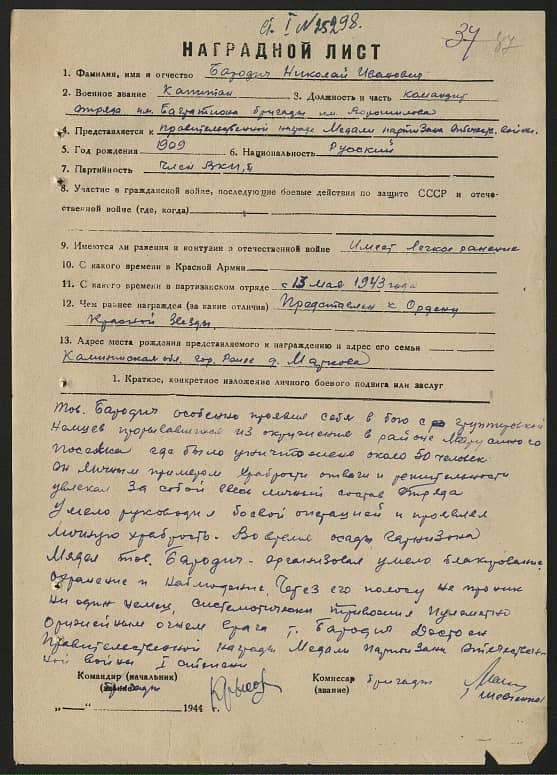 I № 25298.
37 87
НАГРАДНОЙ ЛИСТ
1. Фамилия, имя и отчество Бародич Николай Иванович
2. Военное звание Капитан 3. Должность и часть командир
отряда им. Багратиона бригады им. Ворошилова
4. Представляется к правительственной награде Медали партизана Отечеств. войны.
5. Год рождения 1909 6. Национальность Русский
7. Партийность Член ВКП/б
8. Участие в гражданской войне, последующие боевые действия по защите СССР и отече-
ственной войне (где, когда)
9. Имеются ли ранения и контузии в отечественной войне Имеет легкое ранение
10. С какого времени в Красной Армии
11. С какого времени в партизанском отряде с 13 мая 1943 года
12. Чем раннее награжден (за какие отличия) Представлен к Ордену
Красной Звезды.
13. Адрес места рождения представляемого к награждению и адрес его семьи
Калининская обл. гор. д. Маркова
1. Краткое, конкретное изложение личного боевого подвига или заслуг
тов. Бародич особенно проявил себя в бою с группировкой
Немцев прорывавшихся из окружения в районе
посёлка где было уничтожено около 50 человек.
Он личным примером храбрости отваги и решительности
увлекал за собой весь личный состав отряда
Умело руководил боевой операцией и проявлял
личную храбрость. Во время осады гарнизона
Мядел тов. Бародич организовал умело блакирование.
охранение и наблюдение. Через его полосу не проник
ни один немец, систематически тревожил пулеметно
оружейным огнем врага т. Бародич Достоен
Правительственной награды Медали Партизан Отечествен
ной войны I степени
Командир (начальник) Комиссар бригады
бригады (звание)
„—“ 1944 г.